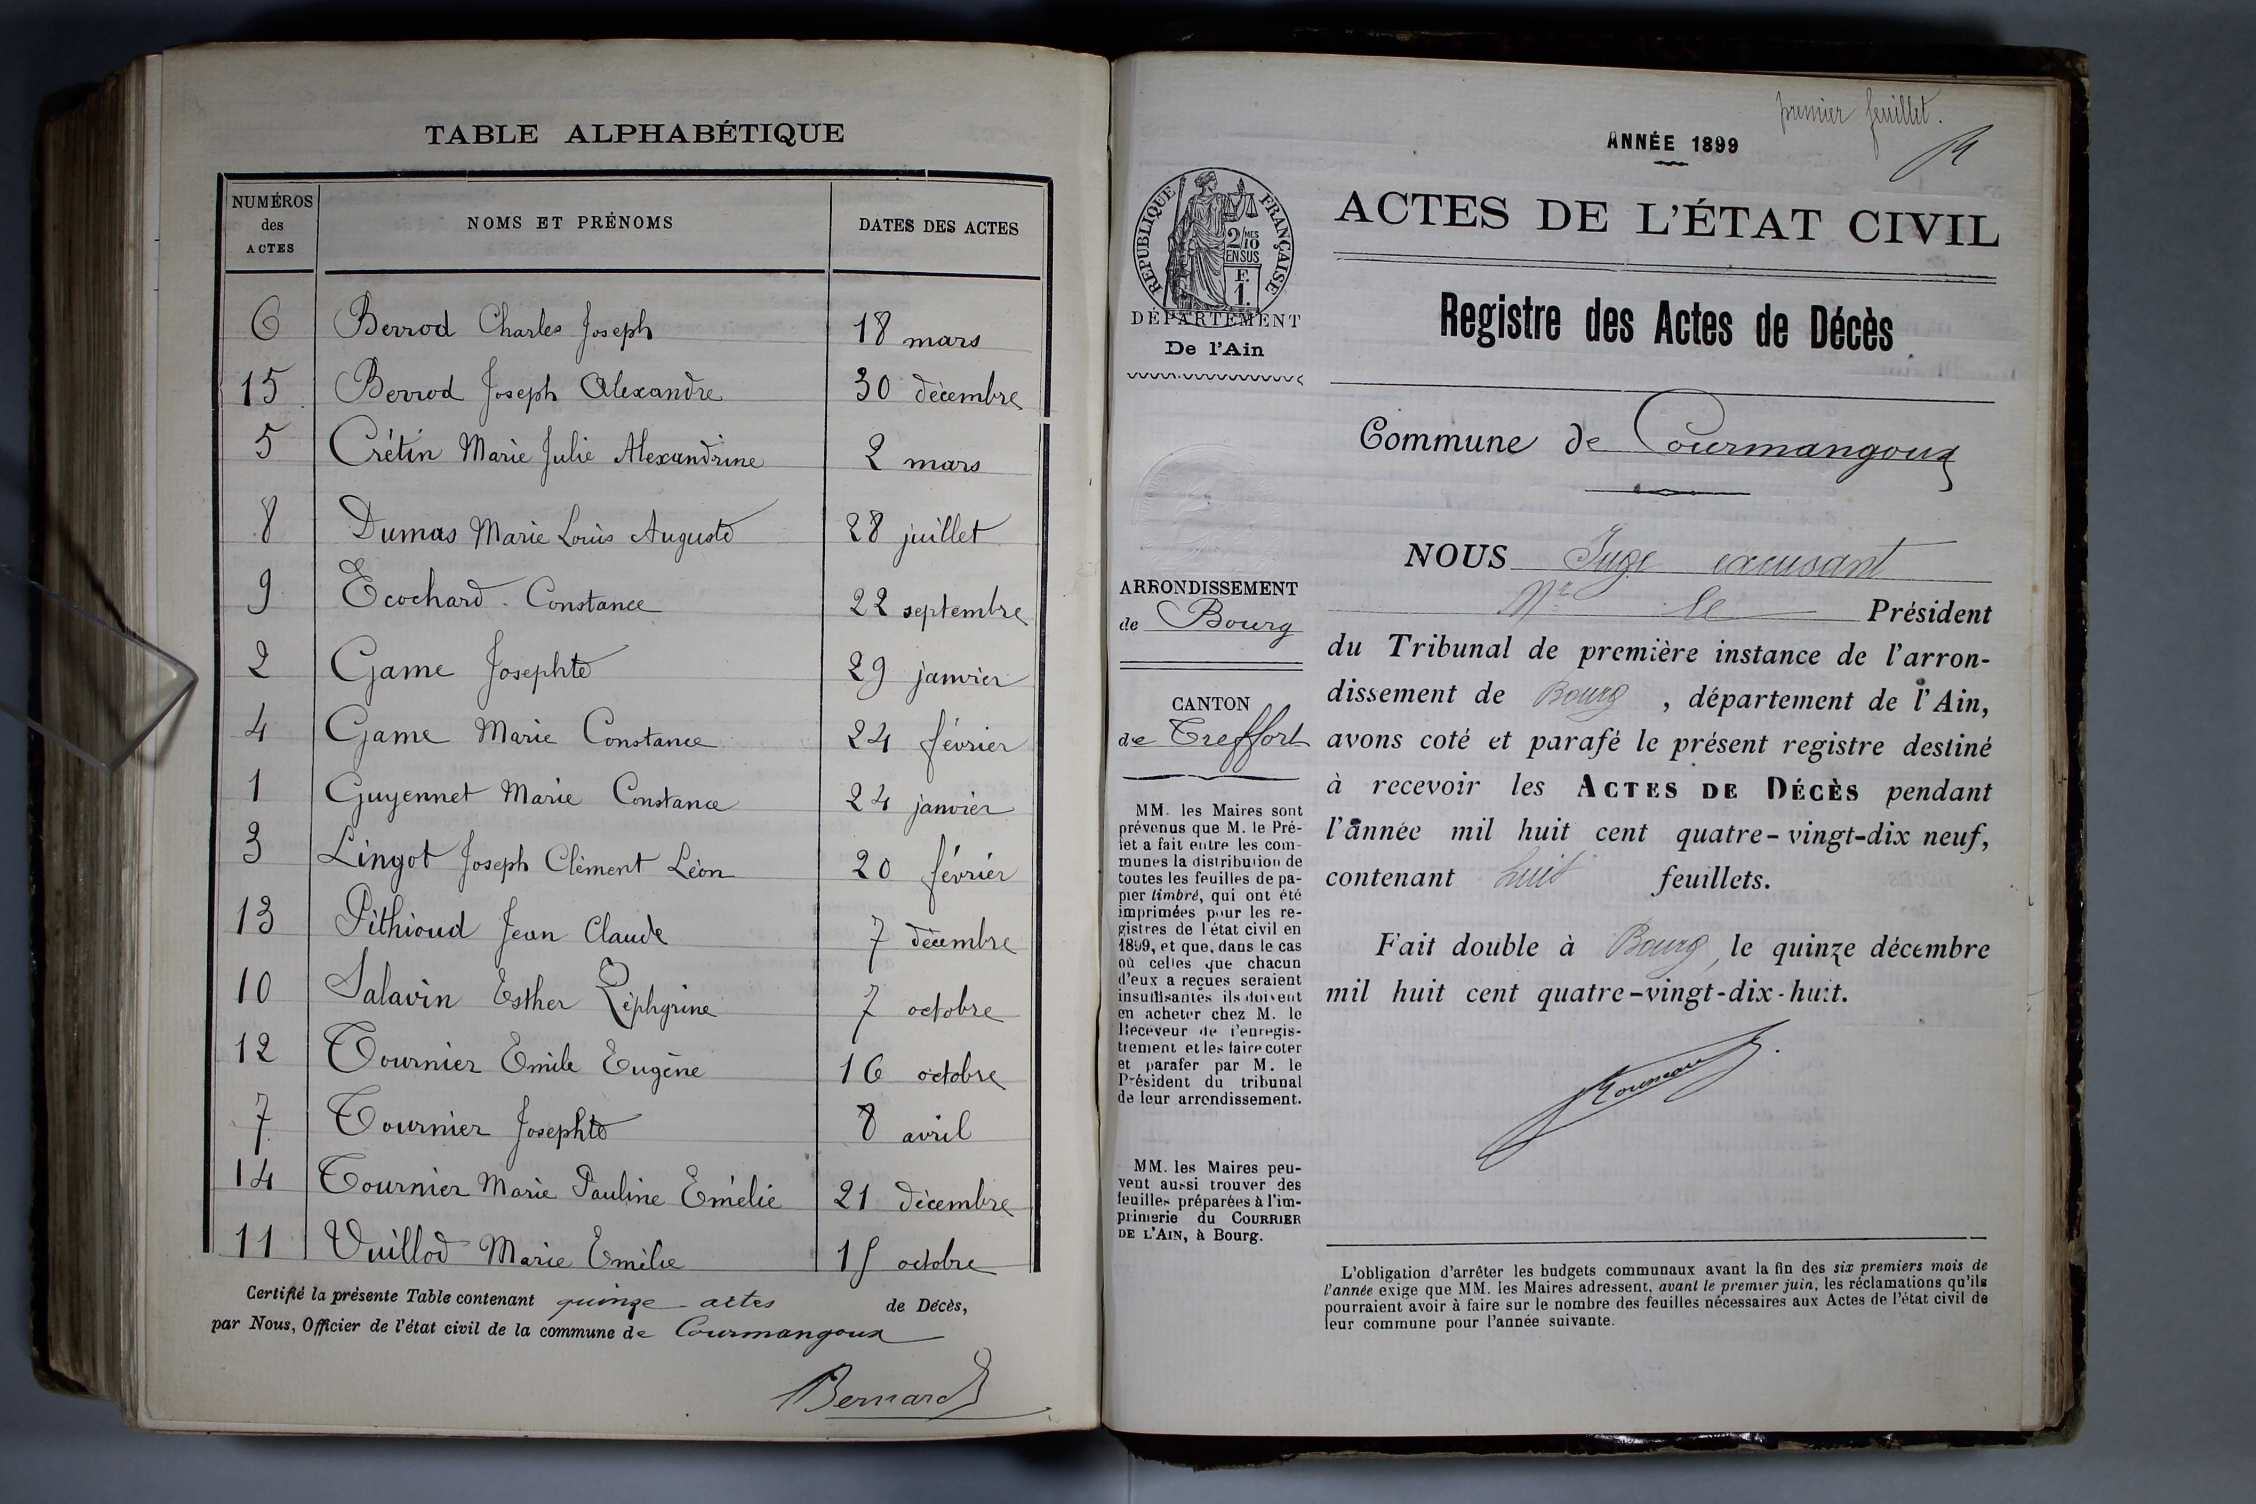 TABLE ALPHABÉTIQUE
NUMÉROS des ACTES NOMS ET PRÉNOMS DATES DES ACTES
6 Berrod Charles Joseph 18 mars
15 Berrod Joseph Alexandre 30 décembre
5 Crétin Marie Julie Alexandrine 2 mars
8 Dumas Marie Louis Auguste 28 juillet
9 Ecochard Constance 22 septembre
2 Game Josephte 29 janvier
4 Game Marie Constance 24 février
1 Guyennet Marie Constance 24 janvier
3 Lingot Joseph Clément Léon 20 février
13 Pithioud Jean Claude 7 décembre
10 Salavin Esther Zéphyrine 7 octobre
12 Tournier Emile Eugène 16 octobre
7 Tournier Josephte 8 avril
14 Tournier Marie Pauline Emélie 21 décembre
11 Vuillod Marie Emélie 15 octobre
Certifié la présente Table contenant quinze actes de Décès,
par Nous, Officier de l'état civil de la commune de Courmangoux
Bernard
premier feuillet.
ANNÉE 1899
RÉPUBLIQUE FRANÇAISE
2/10 MES
EN SUS
F.
1.
DÉPARTEMENT
De l'Ain
ARRONDISSEMENT
de Bourg
CANTON
de Treffort
MM. les Maires sont
prévenus que M. le Pré-
fet a fait entre les com-
munes la distribution de
toutes les feuilles de pa-
pier timbré, qui ont été
imprimées pour les re-
gistres de l'état civil en
1899, et que, dans le cas
où celles que chacun
d'eux a reçues seraient
insuffisantes ils doivent
en acheter chez M. le
Receveur de l'enregis-
trement et les faire coter
et parafer par M. le
Président du tribunal
de leur arrondissement.
MM. les Maires peu-
vent aussi trouver des
feuilles préparées à l'im-
primerie du COURRIER
DE L'AIN, à Bourg.
ACTES DE L'ÉTAT CIVIL
Registre des Actes de Décès
Commune de Courmangoux
NOUS Juge excusant
Mr le Président
du Tribunal de première instance de l'arron-
dissement de Bourg, département de l'Ain,
avons coté et parafé le présent registre destiné
à recevoir les ACTES DE DÉCÈS pendant
l'année mil huit cent quatre-vingt-dix neuf,
contenant huit feuillets.
Fait double à Bourg, le quinze décembre
mil huit cent quatre-vingt-dix-huit.
L'obligation d'arrêter les budgets communaux avant la fin des six premiers mois de
l'année exige que MM. les Maires adressent, avant le premier juin, les réclamations qu'ils
pourraient avoir à faire sur le nombre des feuilles nécessaires aux Actes de l'état civil de
leur commune pour l'année suivante.